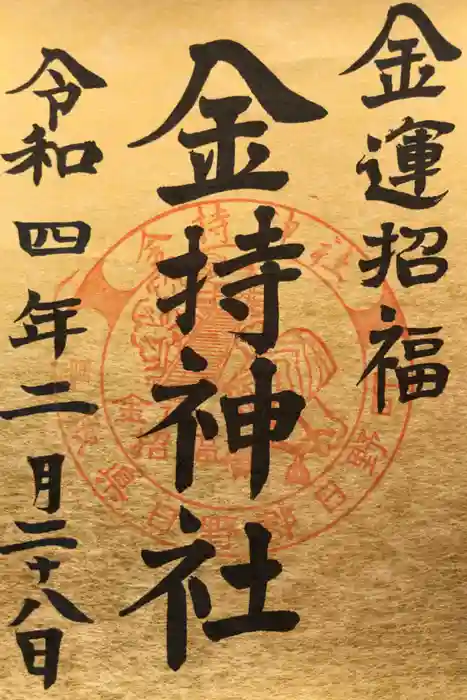 金運招福
金持神社
令和四年二月二十八日
金持神社